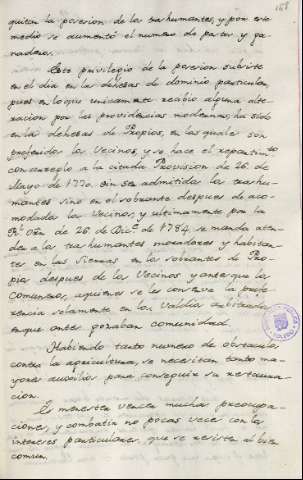 158
quiten la posesion de los trashumantes, y por este
medio se aumentó el numero de pastos y ga-
naderos.
Este privilegio de la posesion subsiste
en el dia en las dehesas de dominio particular,
pues en lo que unicamente recibió alguna alte-
racion por las providencias modernas, ha sido
en las dehesas de Propios, en las quales son
preferidos los Vecinos, y se hace el repartim.to
con arreglo a la citada Provision de 26. de
Mayo de 1770. sin ser admitidos los trashu-
mantes sino en el sobrante despues de aco-
modados los Vecinos, y ultimamente por la
Rl. Orn de 26 de Dic.e de 1784. se manda aten-
der a los trashumantes moradores y habitan-
tes en las Sierras en los sobrantes de Pro-
pios despues de los Vecinos y antes que los
Comuneros, a quienes se les conserva la prefe-
rencia solamente en los Valdios arbitrados
en que antes gozaban comunidad.
Habiendo tanto numero de obstaculos
contra la agricultura, se necesitan tanto ma-
yores auxilios para conseguir su restaura-
cion.
Es menester vencer muchas preocupa-
ciones, y combatir no pocas veces con los
intereses particulares, que se resisten al bien
comun.